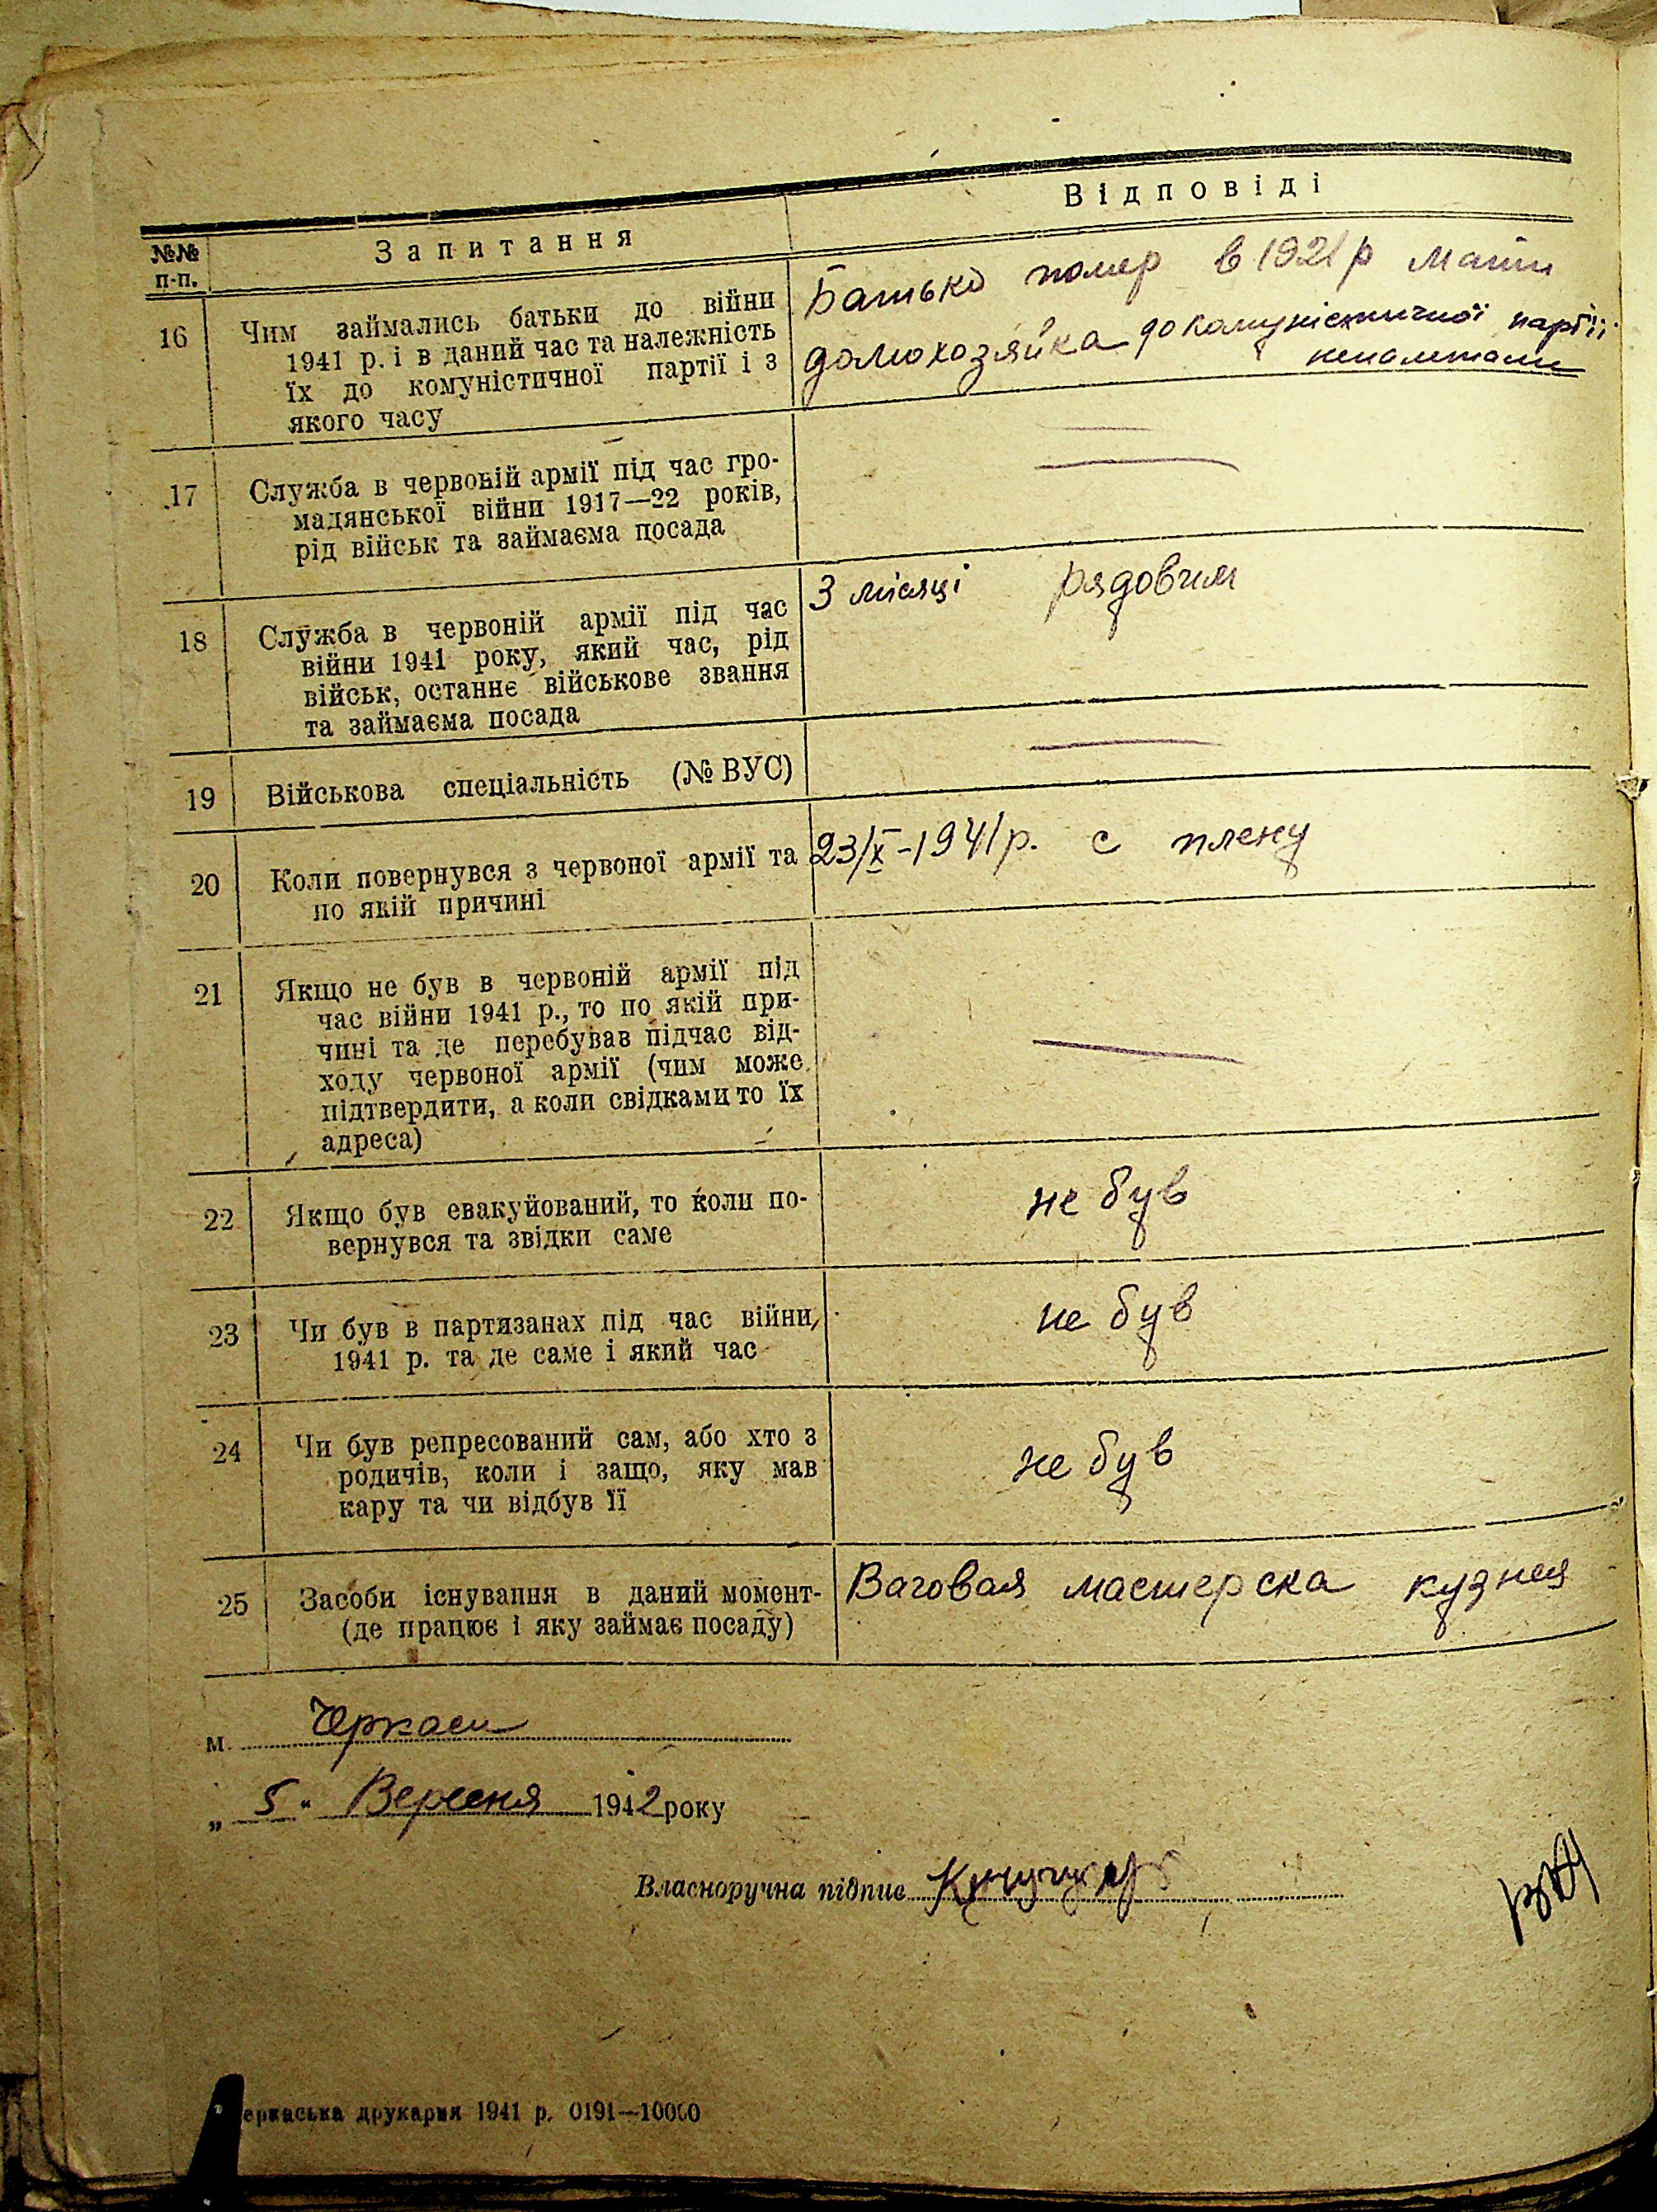 №№ п-п.
Запитання
Відповіді
16
Чим займались батьки до війни
1941 р. і в даний час та належність
їх до комуністичної партії і з
якого часу
Батько помер в 1921 р Мати
домохозяйка до комуністичної партії
неналежали
17
Служба в червоній армії під час гро-
мадянської війни 1917—22 років,
рід військ та займаєма посада
—
18
Служба в червоній армії під час
війни 1941 року, який час, рід
військ, останнє військове звання
та займаєма посада
3 місяці рядовим
19
Військова спеціальність (№ ВУС)
—
20
Коли повернувся з червоної армії та
по якій причині
23/X-1941 р. с плену
21
Якщо не був в червоній армії під
час війни 1941 р., то по якій при-
чині та де перебував підчас від-
ходу червоної армії (чим може
підтвердити, а коли свідками то їх
адреса)
—
22
Якщо був евакуйований, то коли по-
вернувся та звідки саме
не був
23
Чи був в партизанах під час війни,
1941 р. та де саме і який час
не був
24
Чи був репресований сам, або хто з
родичів, коли і защо, яку мав
кару та чи відбув її
не був
25
Засоби існування в даний момент-
(де працює і яку займає посаду)
Ваговая мастерска кузнея
м. Черкаси
„ 5 " Вересня 1942 року
Власноручна підпис
еркаська друкарня 1941 р. 0191—10000